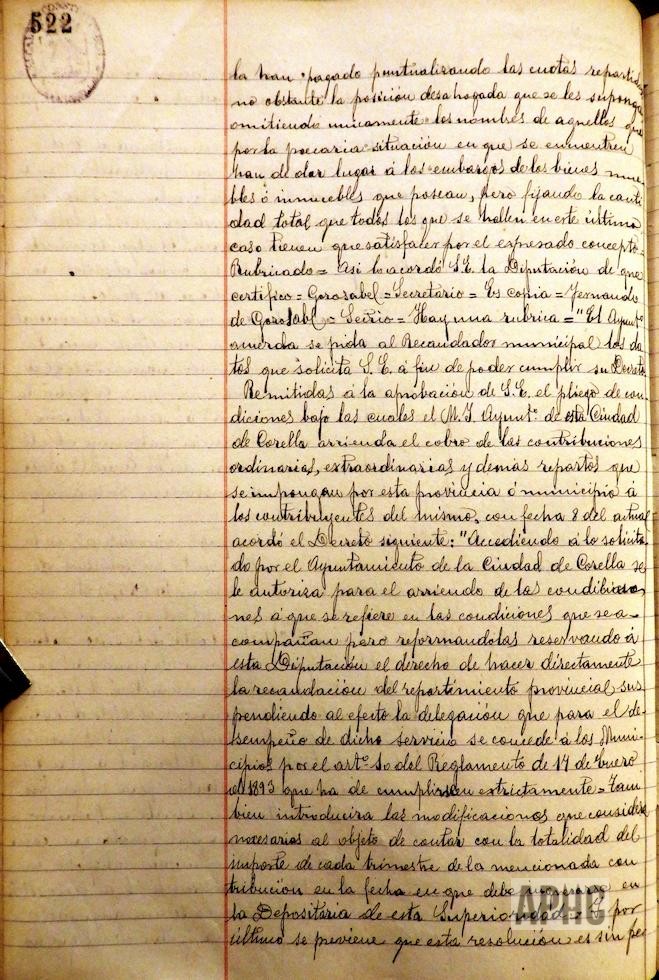 522
la han pagado puntualizando las cuotas repartidas
no obstante la posición desahogada que se les suponga
omitiendo unicamente los nombres de aquellos que
por la precaria situación en que se encuentren
han de dar lugar á los embargos de los bienes mue
bles ó inmuebles que posean, pero fijando la canti
dad total que todos los que se hallen en este último
caso tienen que satisfacer por el espresado concepto.
Rubricado = Asi lo acordó S.E. la Diputación de que
certifico = Gorosabel = Secretario = Es copia = Fernando
de Gorosabel = Secrio = Hay una rubrica = "El Ayuntº
acuerda se pida al Recaudador municipal los da
tos que solicita S.E. á fin de poder cumplir su Decreto
Remitidas á la aprobación de S.E. el pliego de con
diciones bajo las cuales el M.I. Ayuntº. de esta Ciudad
de Corella arrienda el cobro de las contribuciones
ordinarias, extraordinarias y demas repartos que
se impongan por esta provincia ó municipio á
los contribuyentes del mismo, con fecha 8 del actual
acordó el Decreto siguiente: "Accediendo á lo solicita
do por el Ayuntamiento de la Ciudad de Corella se
le autoriza para el arriendo de las
nes á que se refiere en las condiciones que se a-
compañan pero reformandolas reservando á
esta Diputación el derecho de hacer directamente
la recaudación del repartimiento provincial sus
pendiendo al efecto la delegación que para el de
sempeño de dicho servicio se concede á los Muni-
cipios por el artº. 10 del Reglamento de 14 de Enero
de 1893 que ha de cumplirse extrictamente = Tam
bien introducira las modificaciones que considere
necesarios al objeto de contar con la totalidad del
importe de cada trimestre de la mencionada con
tribución en la fecha en que debe en
la Depositaria de esta Superioridad = Y por
último se previene que esta resolución es sin per
APHC